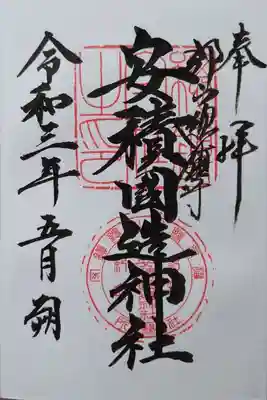 奉拝
郡山總鎮守
安積國造神社
令和三年五月朔